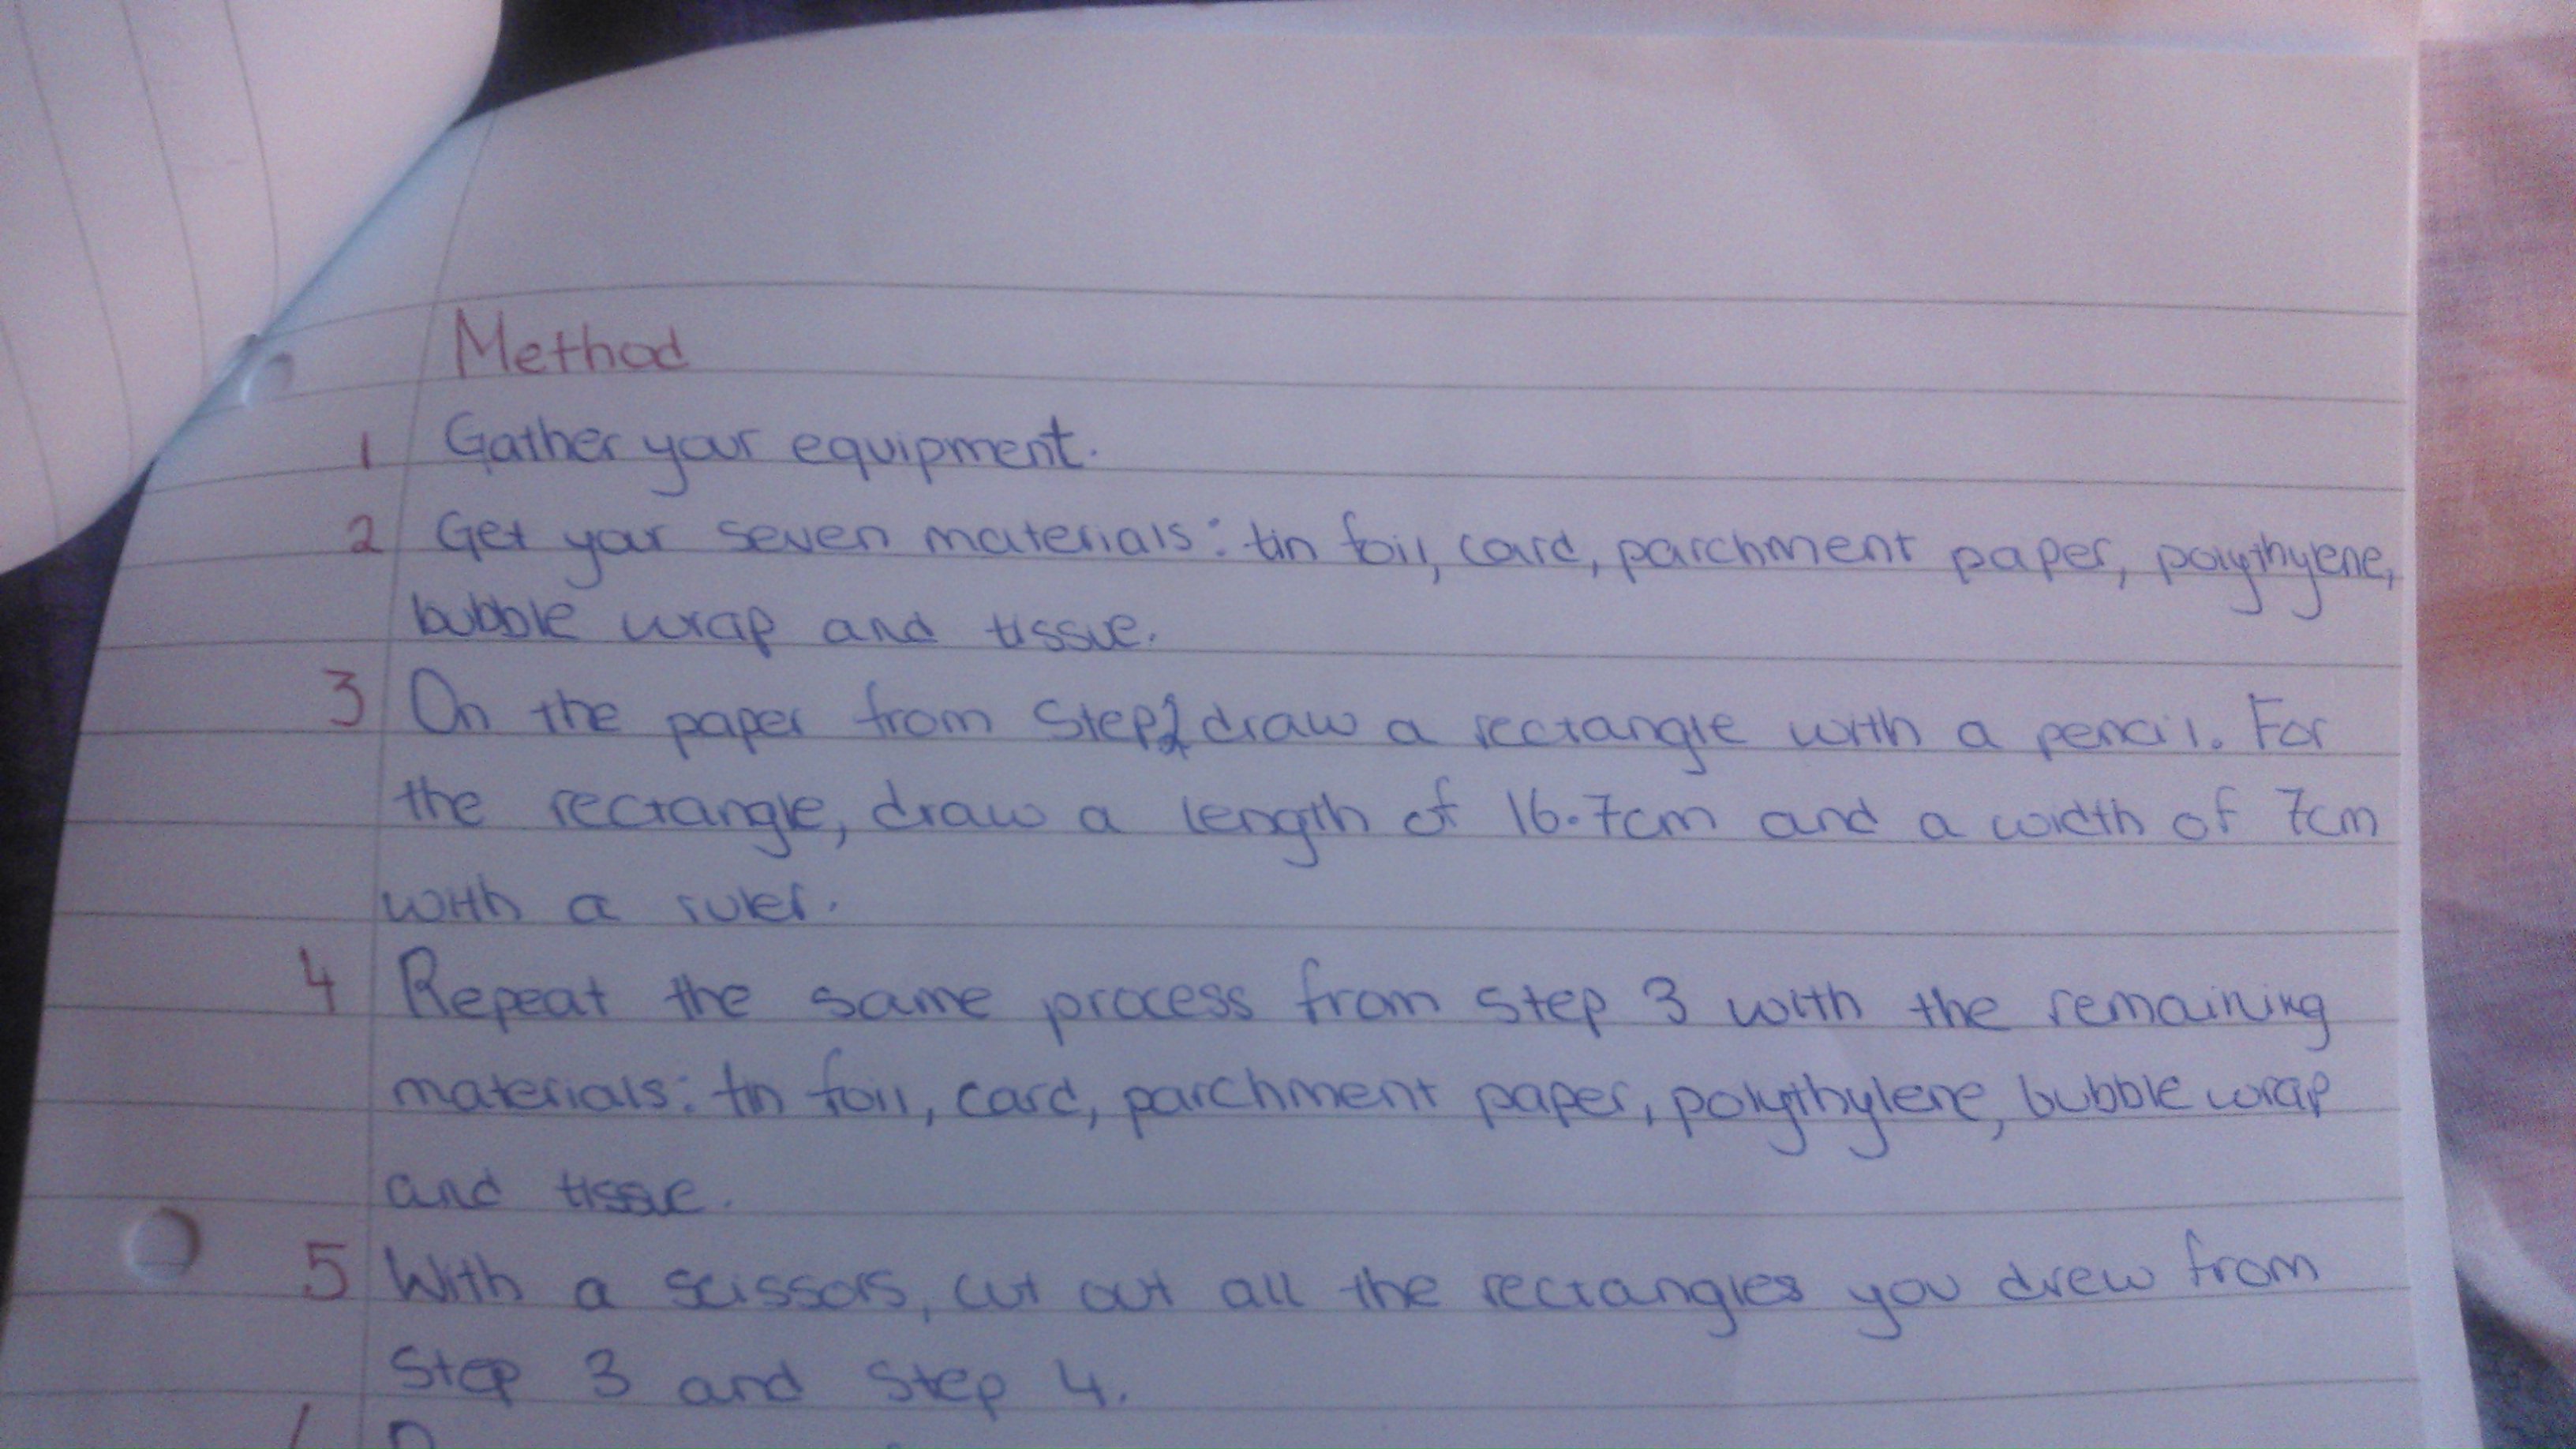 Method
1 Gather your equipment.
2 Get your seven materials: tin foil, card, parchment paper, polythylene,
bubble wrap and tissue.
3 On the paper from Step 2 draw a rectangle with a pencil. For
the rectangle, draw a length of 16.7cm and a width of 7cm
with a ruler.
4 Repeat the same process from Step 3 with the remaining
materials: tin foil, card, parchment paper, polythylene, bubble wrap
and tissue.
5 With a scissors, cut out all the rectangles you drew from
Step 3 and Step 4.